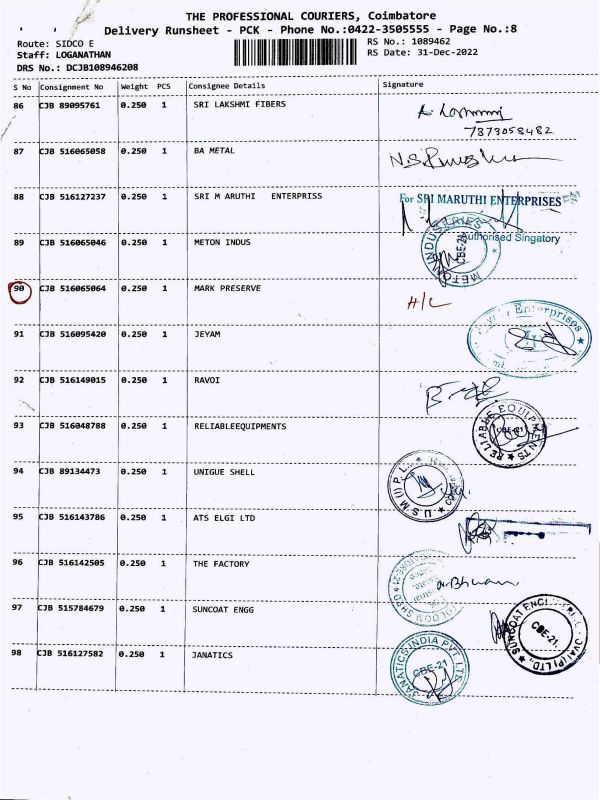 THE PROFESSIONAL COURIERS, Coimbatore
Delivery Runsheet - PCK - Phone No.:0422-3505555 - Page No.:8
Route: SIDCO E
RS No.: 1089462
Staff: LOGANATHAN
RS Date: 31-Dec-2022
DRS No.: DCJB108946208
S No Consignment No Weight PCS Consignee Details Signature
86 CJB 89095761 0.250 1 SRI LAKSHMI FIBERS
7373058482
87 CJB 516065058 0.250 1 BA METAL
88 CJB 516127237 0.250 1 SRI M ARUTHI ENTERPRISS For SRI MARUTHI ENTERPRISES
Authorised Singatory
89 CJB 516065046 0.250 1 METON INDUS METO INDUSTRIES CBE-21
90 CJB 516065064 0.250 1 MARK PRESERVE H/L
91 CJB 516095420 0.250 1 JEYAM Enterprises
92 CJB 516149015 0.250 1 RAVOI
93 CJB 516048788 0.250 1 RELIABLEEQUIPMENTS RELIABLE EQUIPMENTS CBE-21
94 CJB 89134473 0.250 1 UNIGUE SHELL U.S.M (I) P.L.
95 CJB 516143786 0.250 1 ATS ELGI LTD
96 CJB 516142505 0.250 1 THE FACTORY
97 CJB 515784679 0.250 1 SUNCOAT ENGG SUNCOAT CBE-21.
98 CJB 516127582 0.250 1 JANATICS JANATICS INDIA PVT LTD. CBE-21